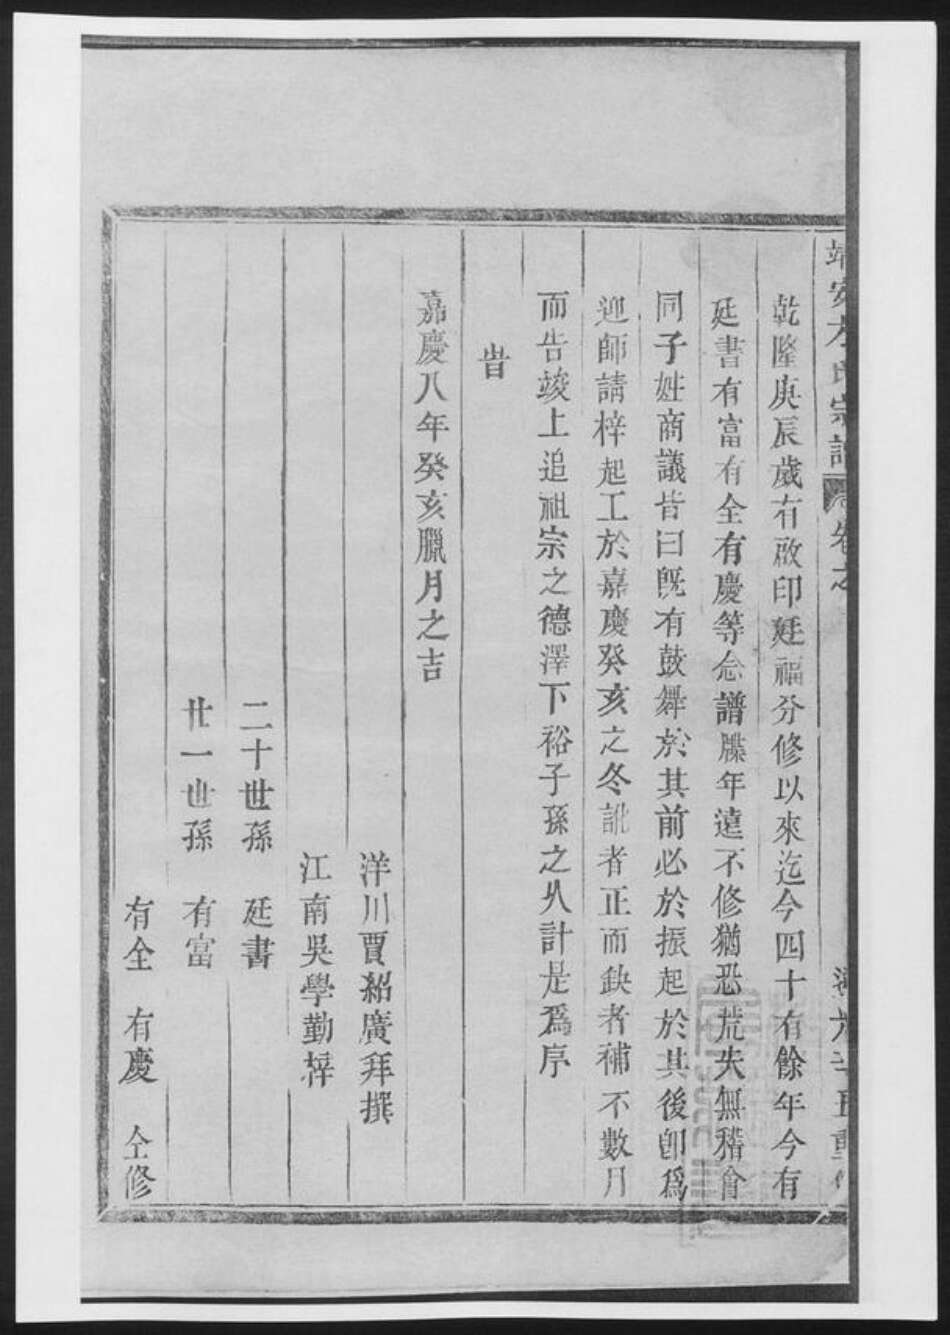 乾隆庚辰歲右啟印廷福分修以來迄今四十有餘年今有
廷書有富有全有慶等念譜牒年遠不修猶恐荒失無稽會
同子姓商議皆曰旣有鼓舞於其前必於振起於其後卽爲
迎師請梓起工於嘉慶癸亥之冬訛者正而缺者補不數月
而告竣上追祖宗之德澤下裕子孫之久計是爲序
旹
嘉慶八年癸亥臘月之吉
洋川賈紹廣拜撰
江南吳學勤梓
二十世孫 廷書
廿一世孫 有富
有全 有慶 仝修